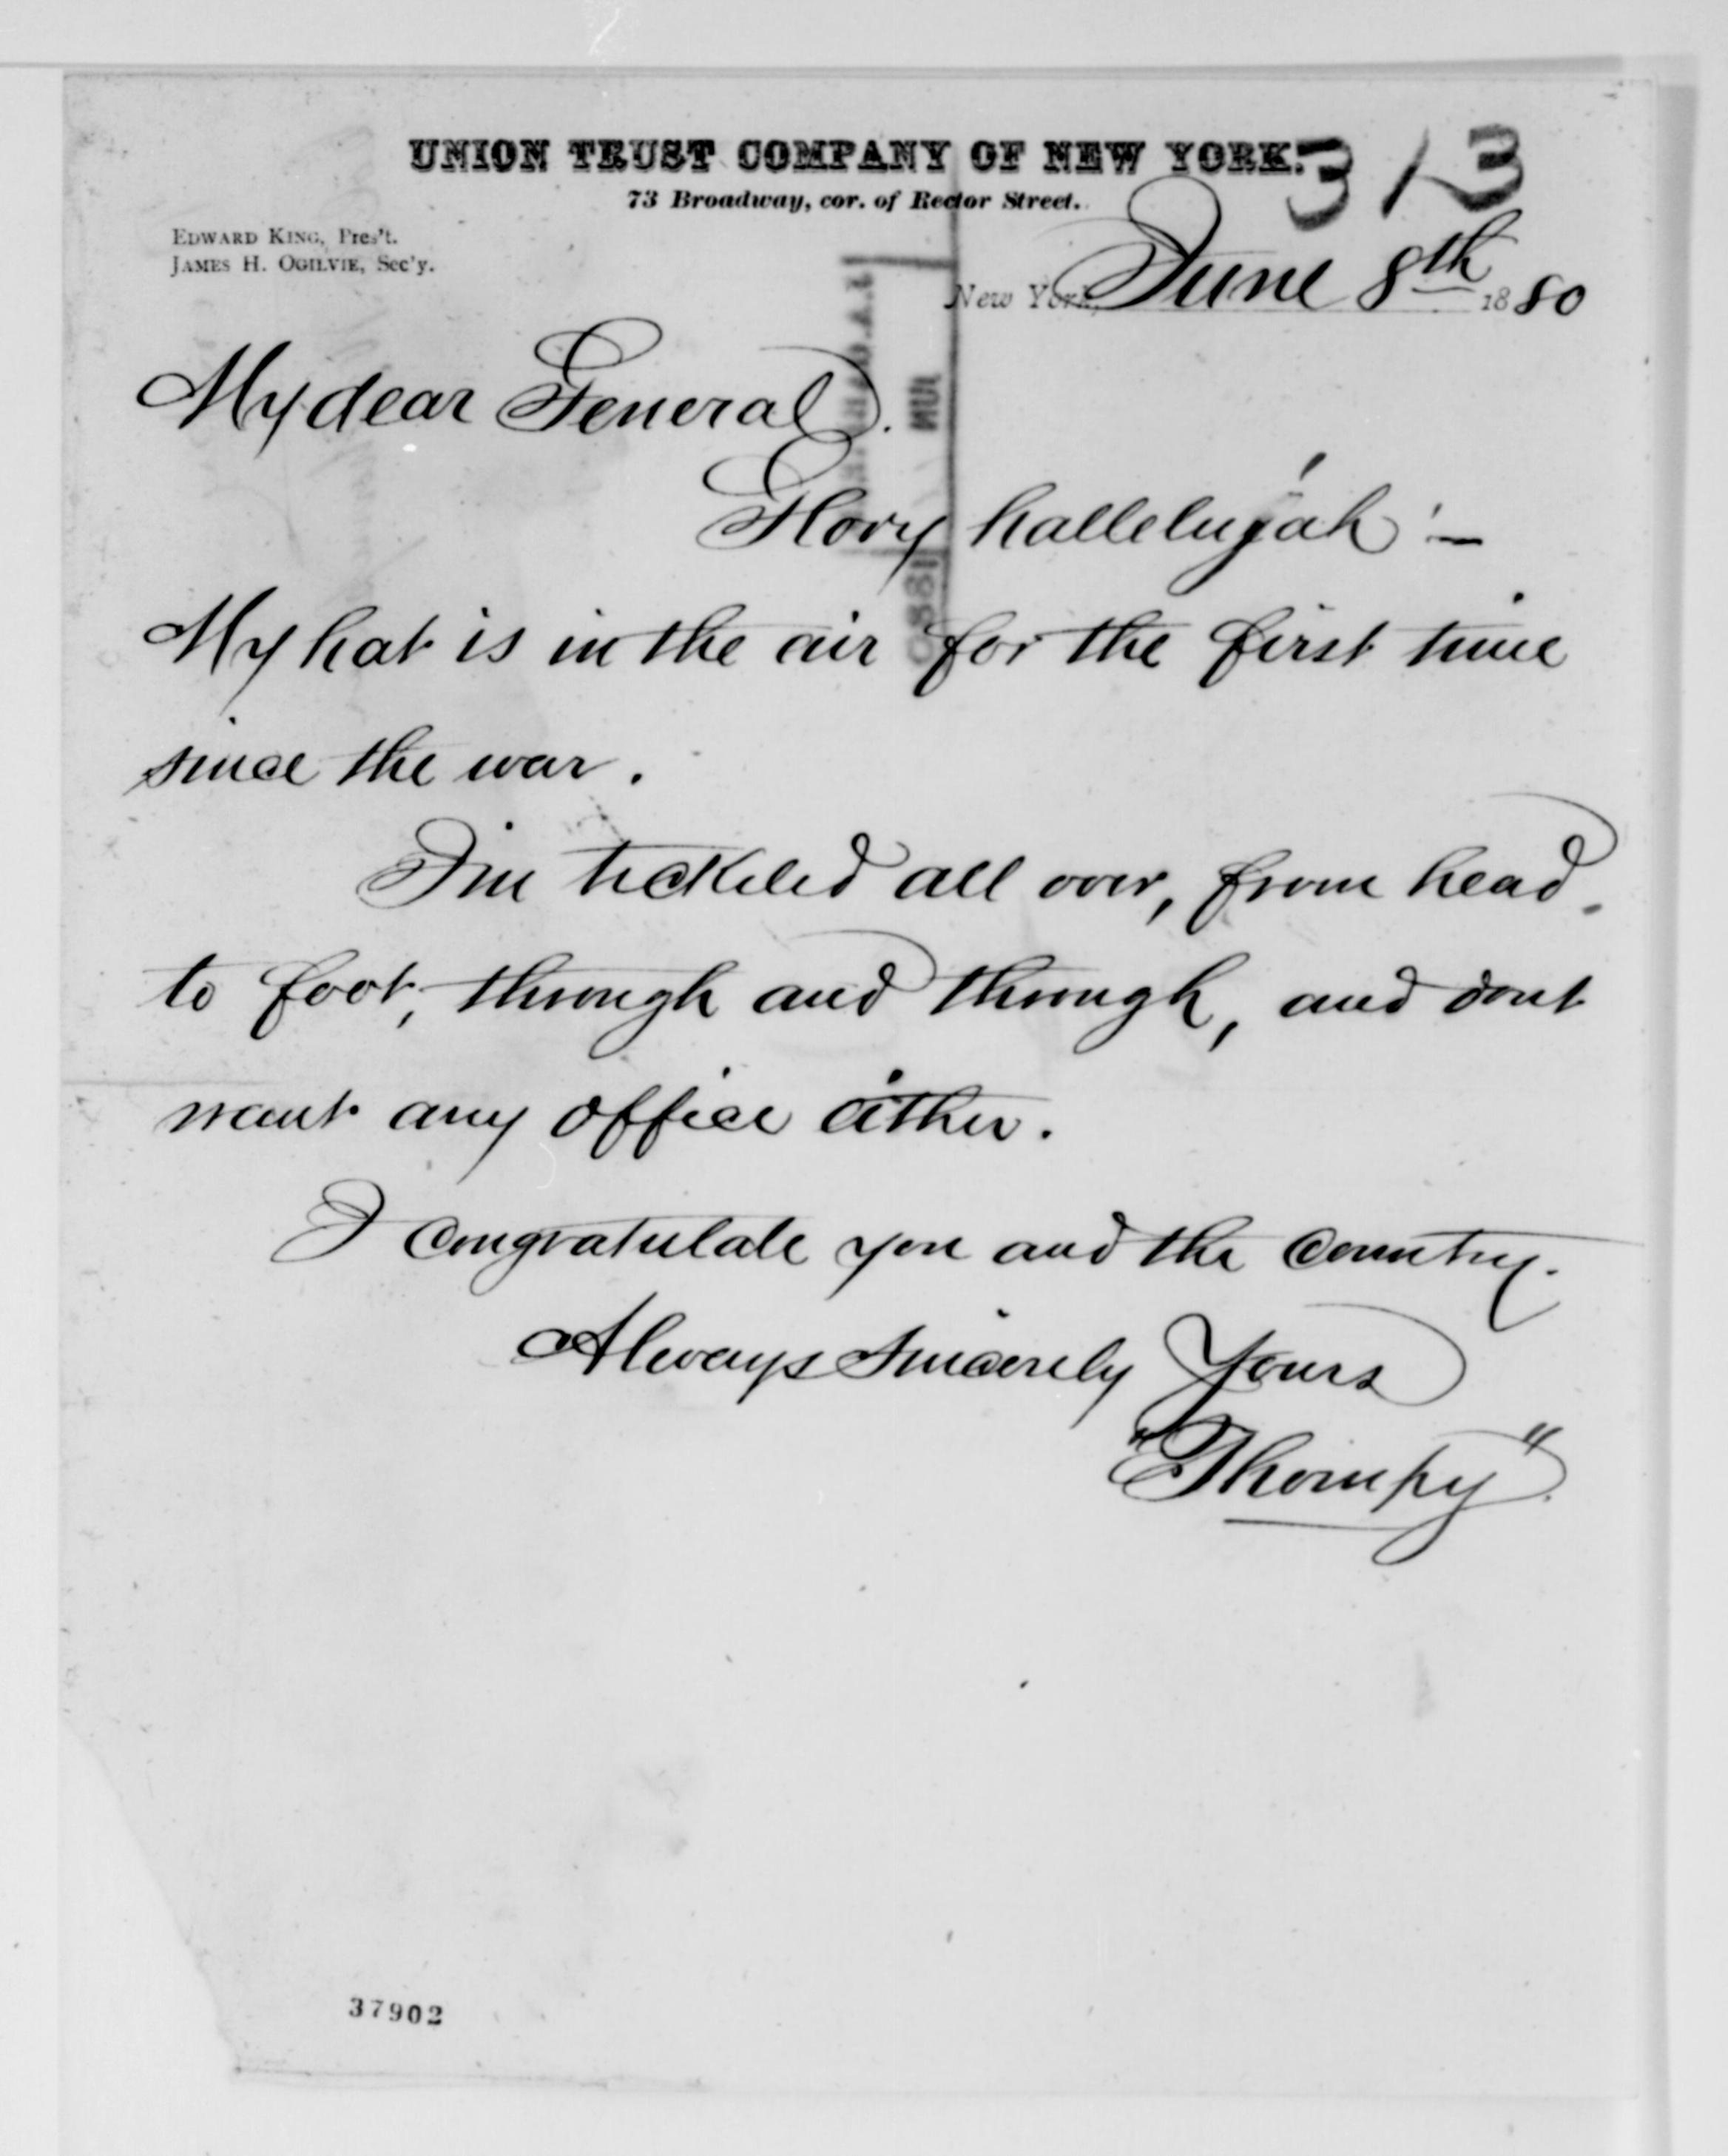 UNION TRUST COMPANY OF NEW YORK.
313
73 Broadway, cor. of Rector Street.
EDWARD KING, Pres't.
JAMES H. OGILVIE, Sec'y.
New York, June 8th 1880
My dear General.
Glory hallelujah!—
My hat is in the air for the first time
since the war.
I'm tickeled all over, from head
to foot, through and through, and dont
want any office either.
I congratulate you and the Country.
Always Sincerely Yours
"Thompy"
37902